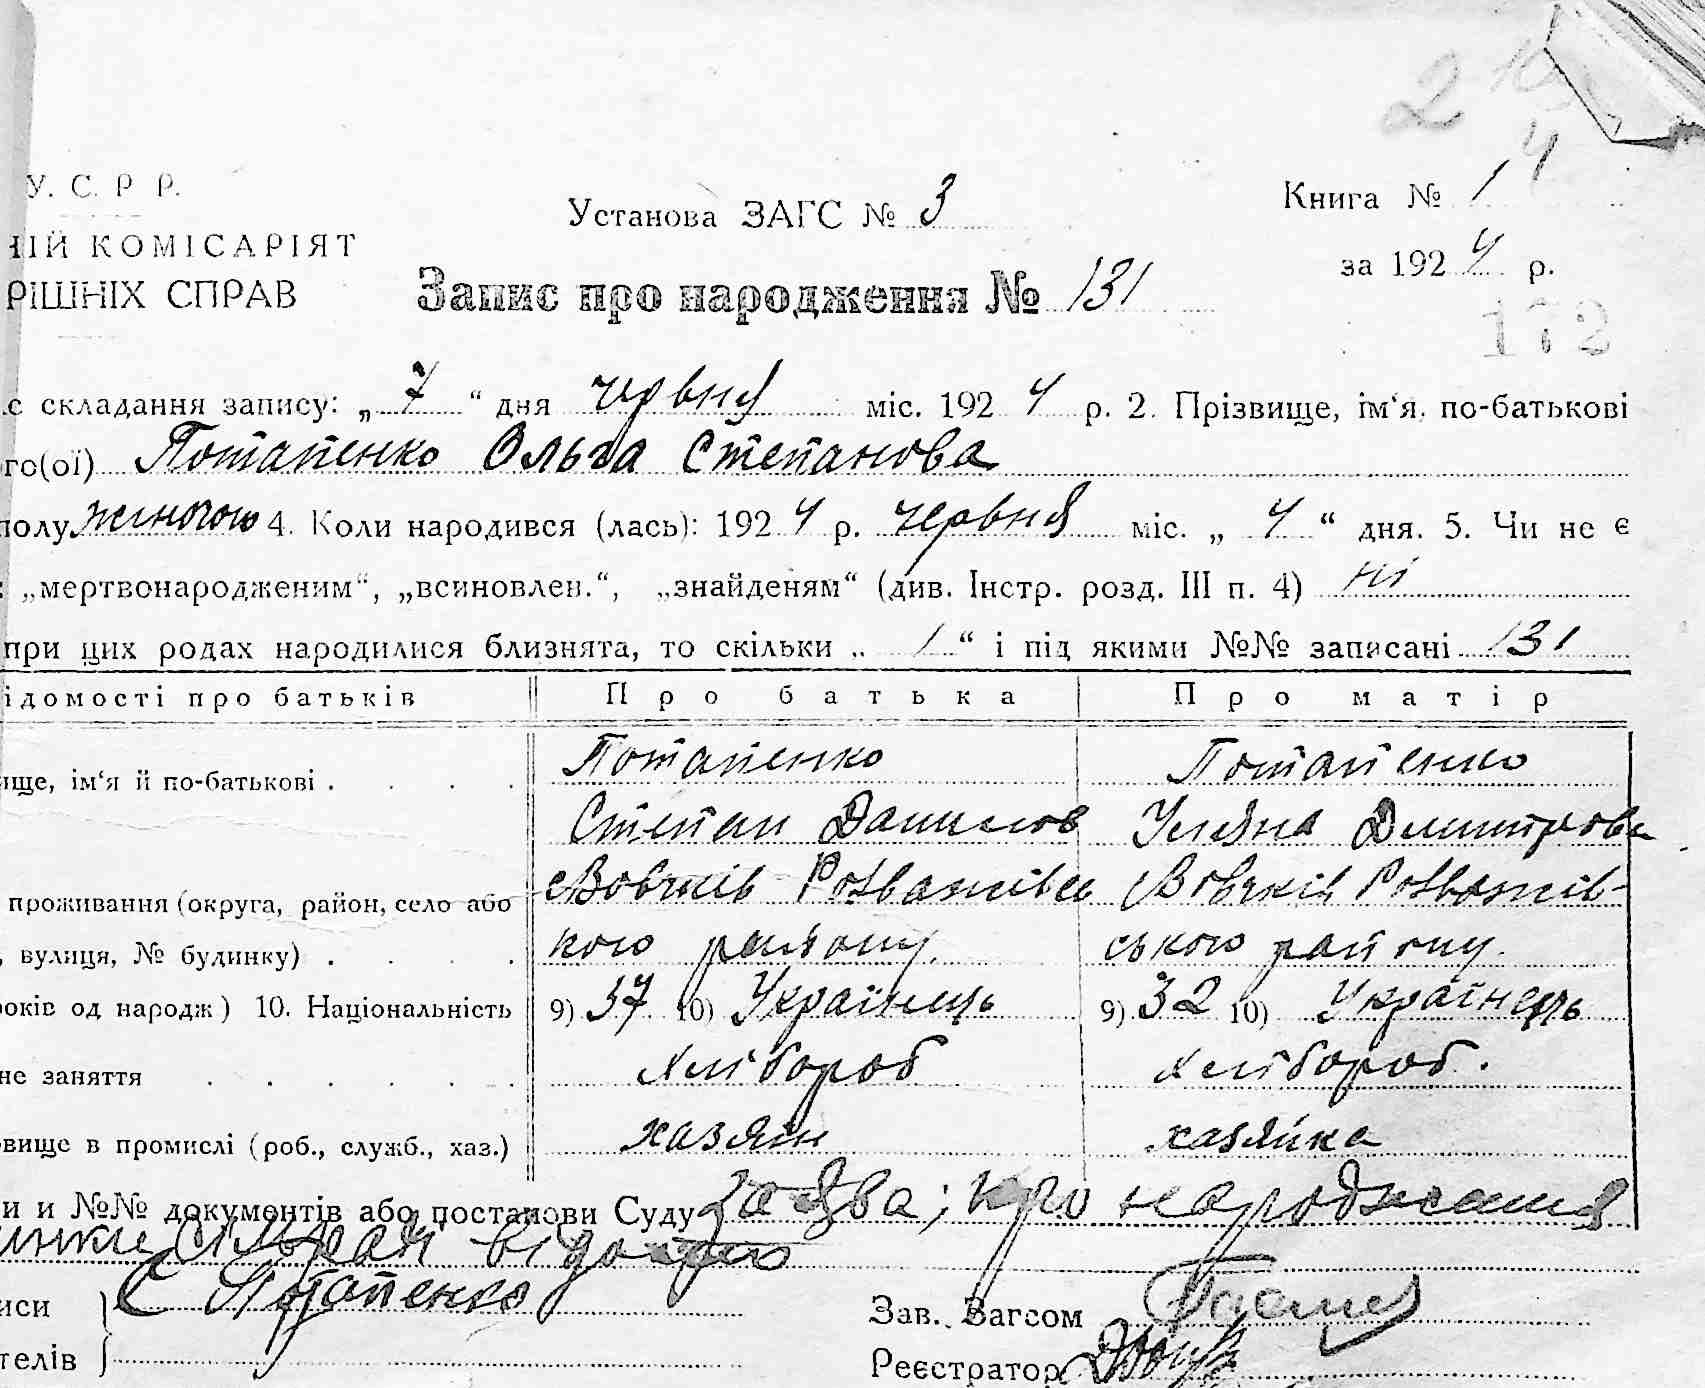 2
4
У. С. Р Р.
Установа ЗАГС № 3
Книга № 1
НІЙ КОМІСАРІЯТ
за 192 4 р.
РІШНІХ СПРАВ
Запис про народження № 131
172
с складання запису: „ 7 “ дня червня міс. 192 4 р. 2. Прізвище, ім‘я, по-батькові
го(ої) Потапенко Ольга Степанова
полу жіночою 4. Коли народився (лась): 192 4 р. червня міс. „ 4 “ дня. 5. Чи не є
: „мертвонародженим“, „всиновлен.“, „знайденям“ (див. Інстр. розд. III п. 4) ні
при цих родах народилися близнята, то скільки „ 1 “ і під якими №№ записані 131
ідомості про батьків Про батька Про матір
ище, ім‘я й по-батькові . . . . Потапенко Потапенко
Степан Данилов Уляна Дмитрова
проживання (округа, район, село або Розважівсь Розважів-
, вулиця, № будинку) . . . . кого району. ського району.
років од народж ) 10. Національність 9) 37 10) Українець 9) 32 10) Українець
не заняття . . . . . . Хлібороб Хлібороб.
овище в промислі (роб., служб., хаз.) хазяїн хазяйка
и и №№ документів або постанови Суду заява; про народження
сільради
иси } С Потапенко Зав. Загсом
телів } Реєстратор